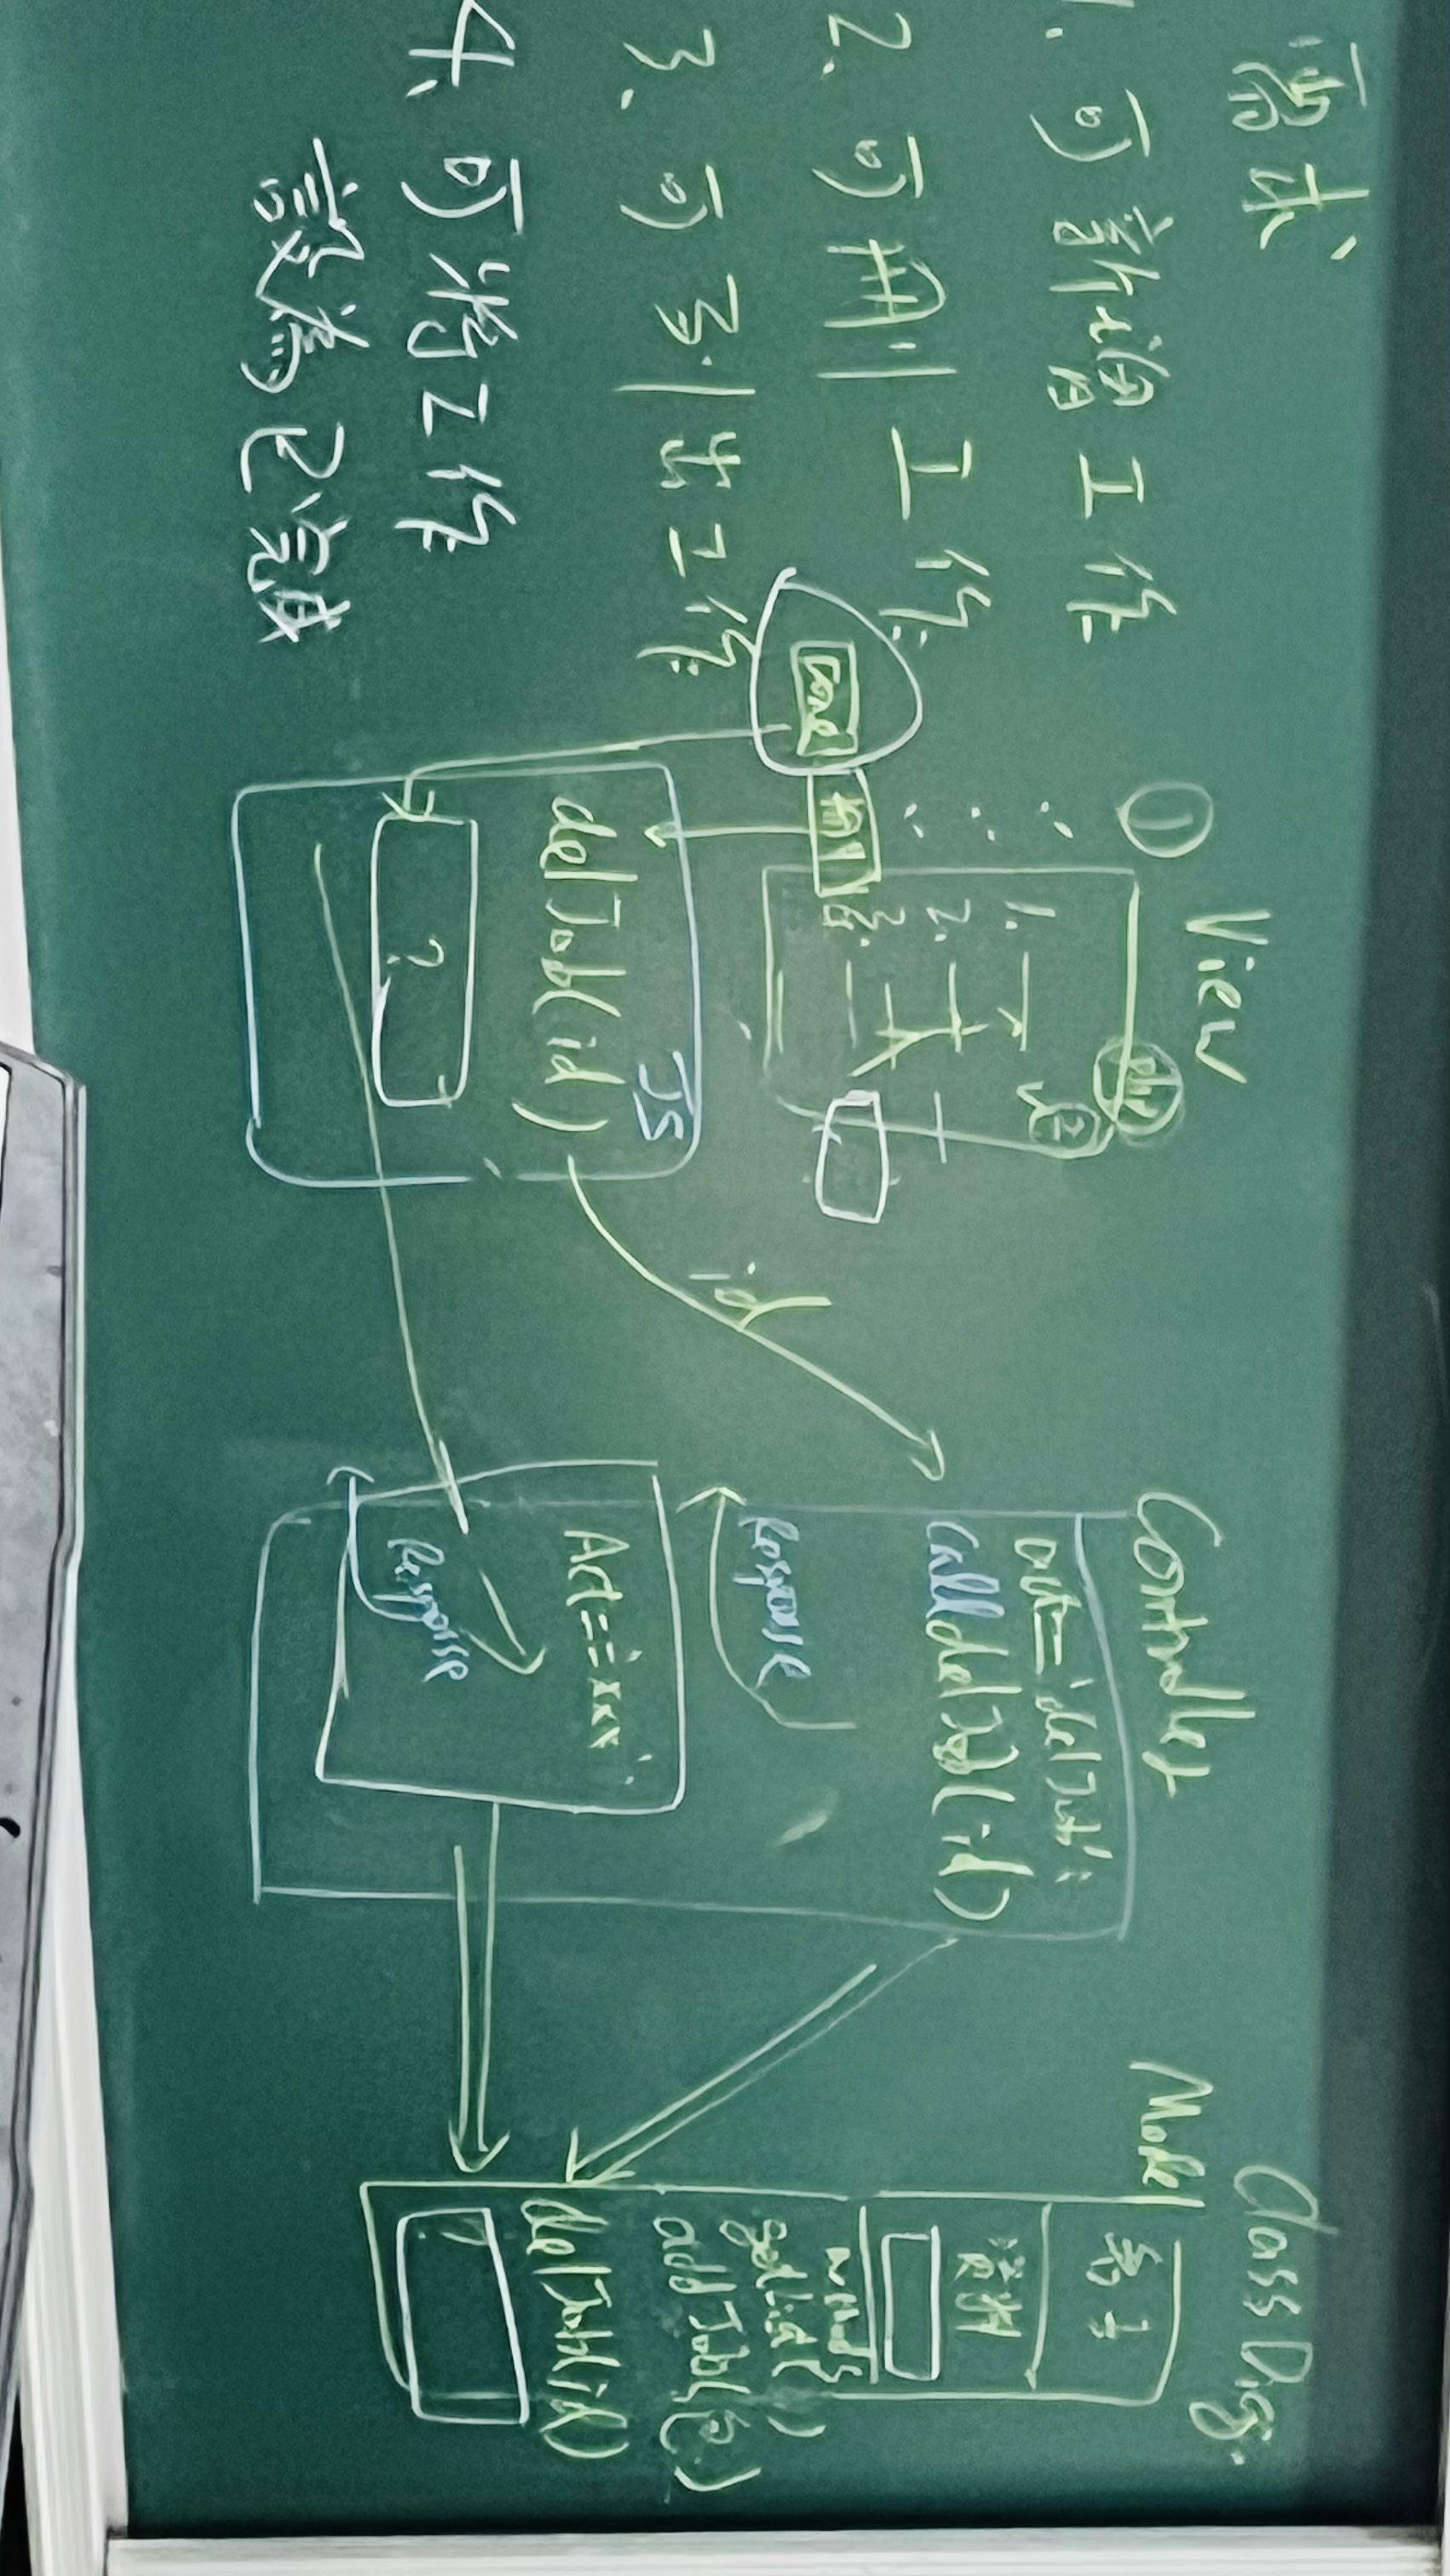 需求
1. 可新增工作
2. 可刪工作
3. 可列出工作
4. 可將工作
設為已完成
① View
1.
2.
3.
done
JS
delJob(id)
?
id
Controller
act='delJob':
call delJob(id)
response
Act=='xxx':
response
Class Dig.
Model
資料
getList()
addJob( )
delJob(id)